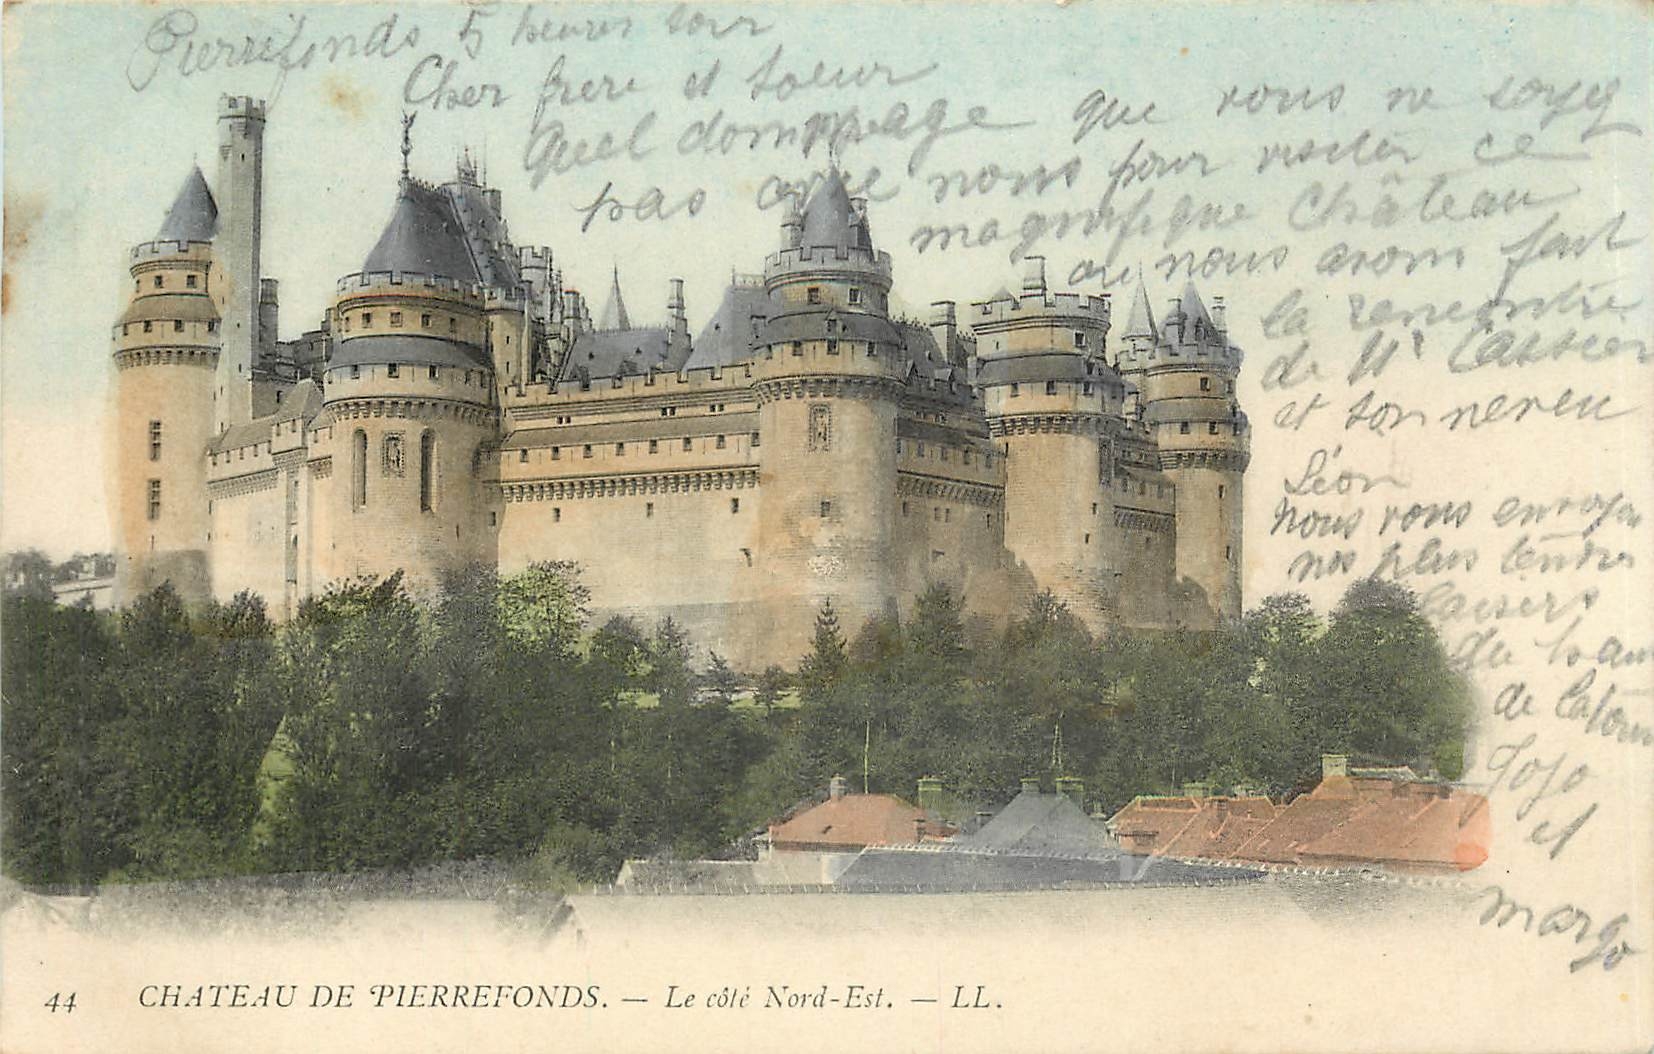 Pierrefonds 5 heures soir
Cher frere et soeur
Quel dommage que vous ne soyez
pas avec nous pour visiter ce
magnifique Château
ou nous avons fait
la rencontre
de Mr Cassier
et son neveu
Léon
Nous vous envoyon
nos plus tendres
baisers
du haut
de
Jojo
et
Margo
44 CHATEAU DE PIERREFONDS. — Le côté Nord-Est. — LL.